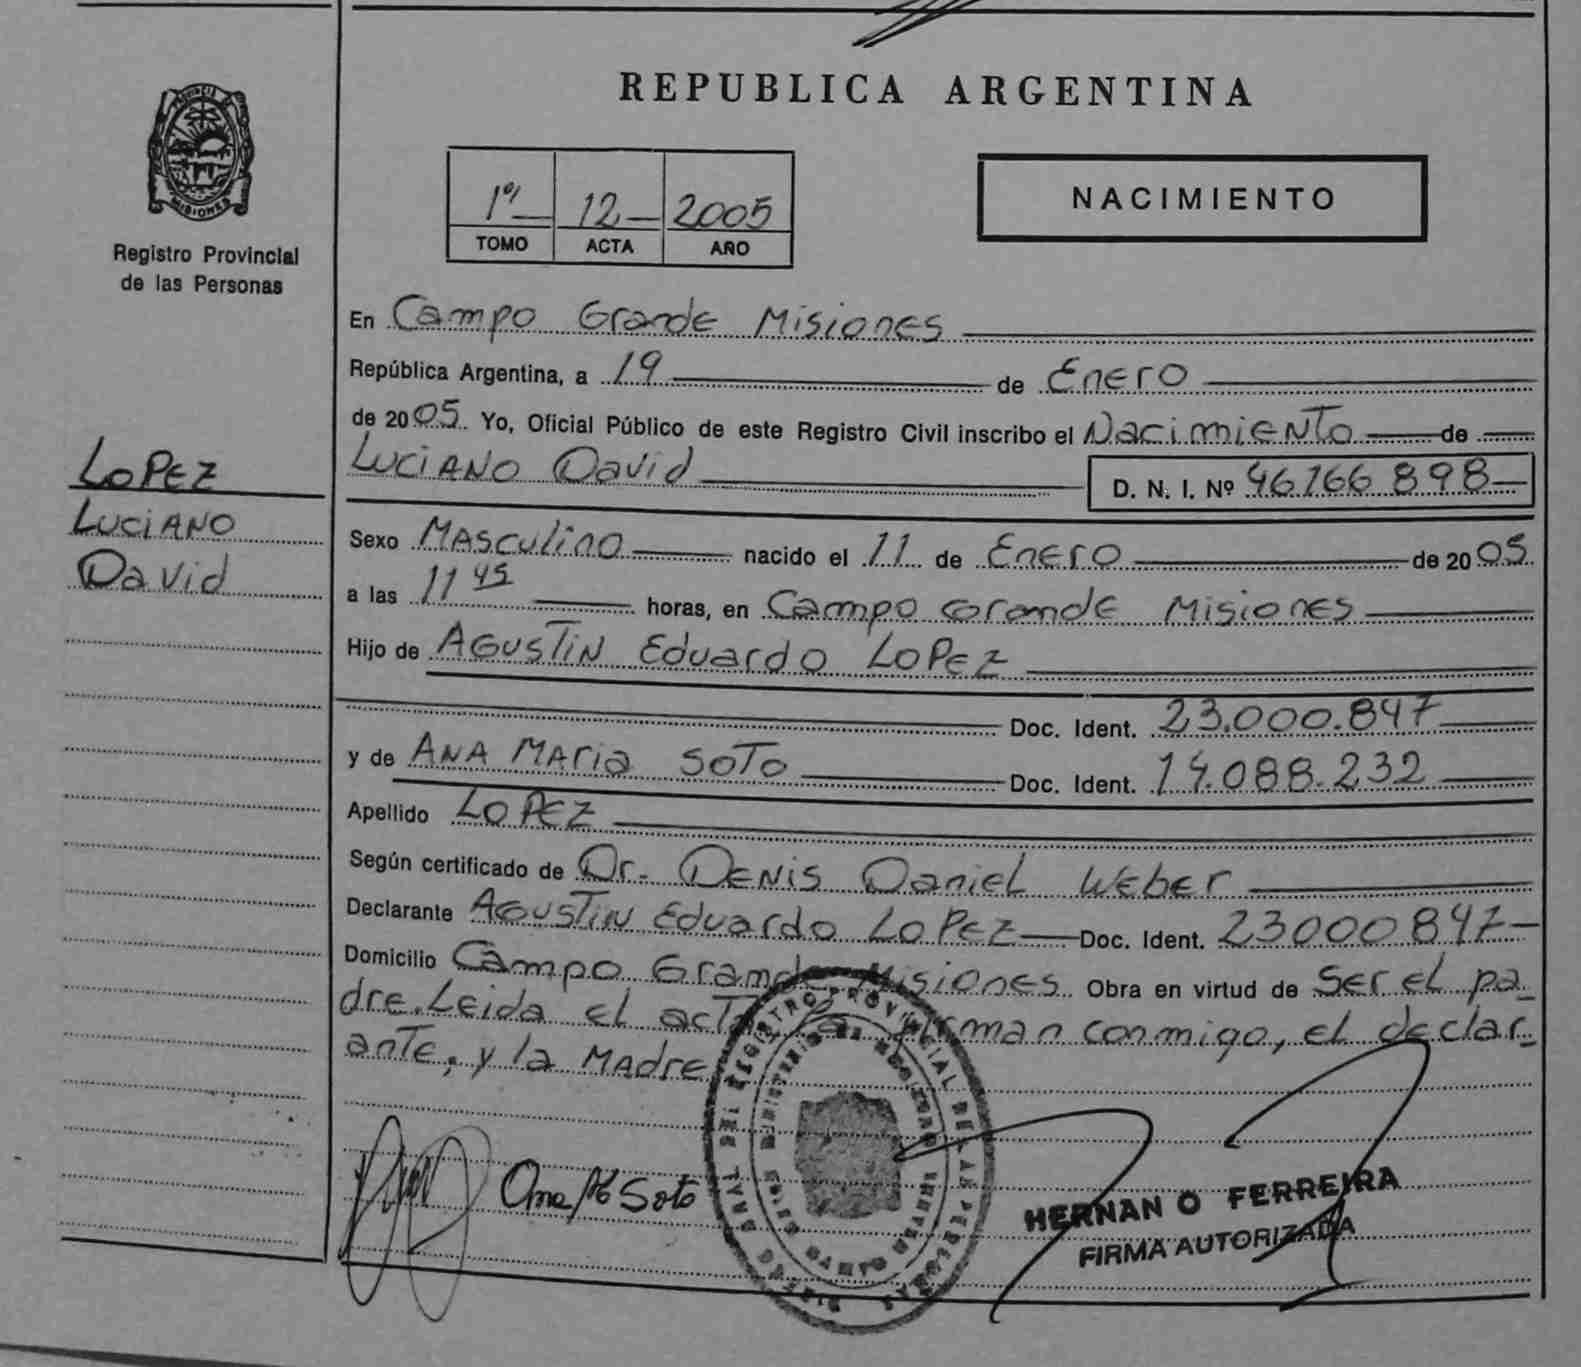 REPUBLICA ARGENTINA
PROVINCIA DE
MISIONES
Registro Provincial
de las Personas
1º 12 2005
TOMO ACTA AÑO
NACIMIENTO
En Campo Grande Misiones
República Argentina, a 19 de Enero
de 2005 Yo, Oficial Público de este Registro Civil inscribo el Nacimiento de
Luciano David D. N. I. Nº 46.166.898
LOPEZ
Luciano
David
Sexo Masculino nacido el 11 de Enero de 2005
a las 11 45 horas, en Campo Grande Misiones
Hijo de Agustin Eduardo Lopez
Doc. Ident. 23.000.847
y de Ana Maria Soto Doc. Ident. 14.088.232
Apellido Lopez
Según certificado de Dr. Denis Daniel Weber
Declarante Agustin Eduardo Lopez Doc. Ident. 23000847
Domicilio Campo Grande Misiones Obra en virtud de Ser el pa-
dre. Leida el acta la firman conmigo, el declar-
ante, y la Madre
Ana Mª Soto
REGISTRO PROVINCIAL DE LAS PERSONAS
HERNAN O FERREIRA
FIRMA AUTORIZADA